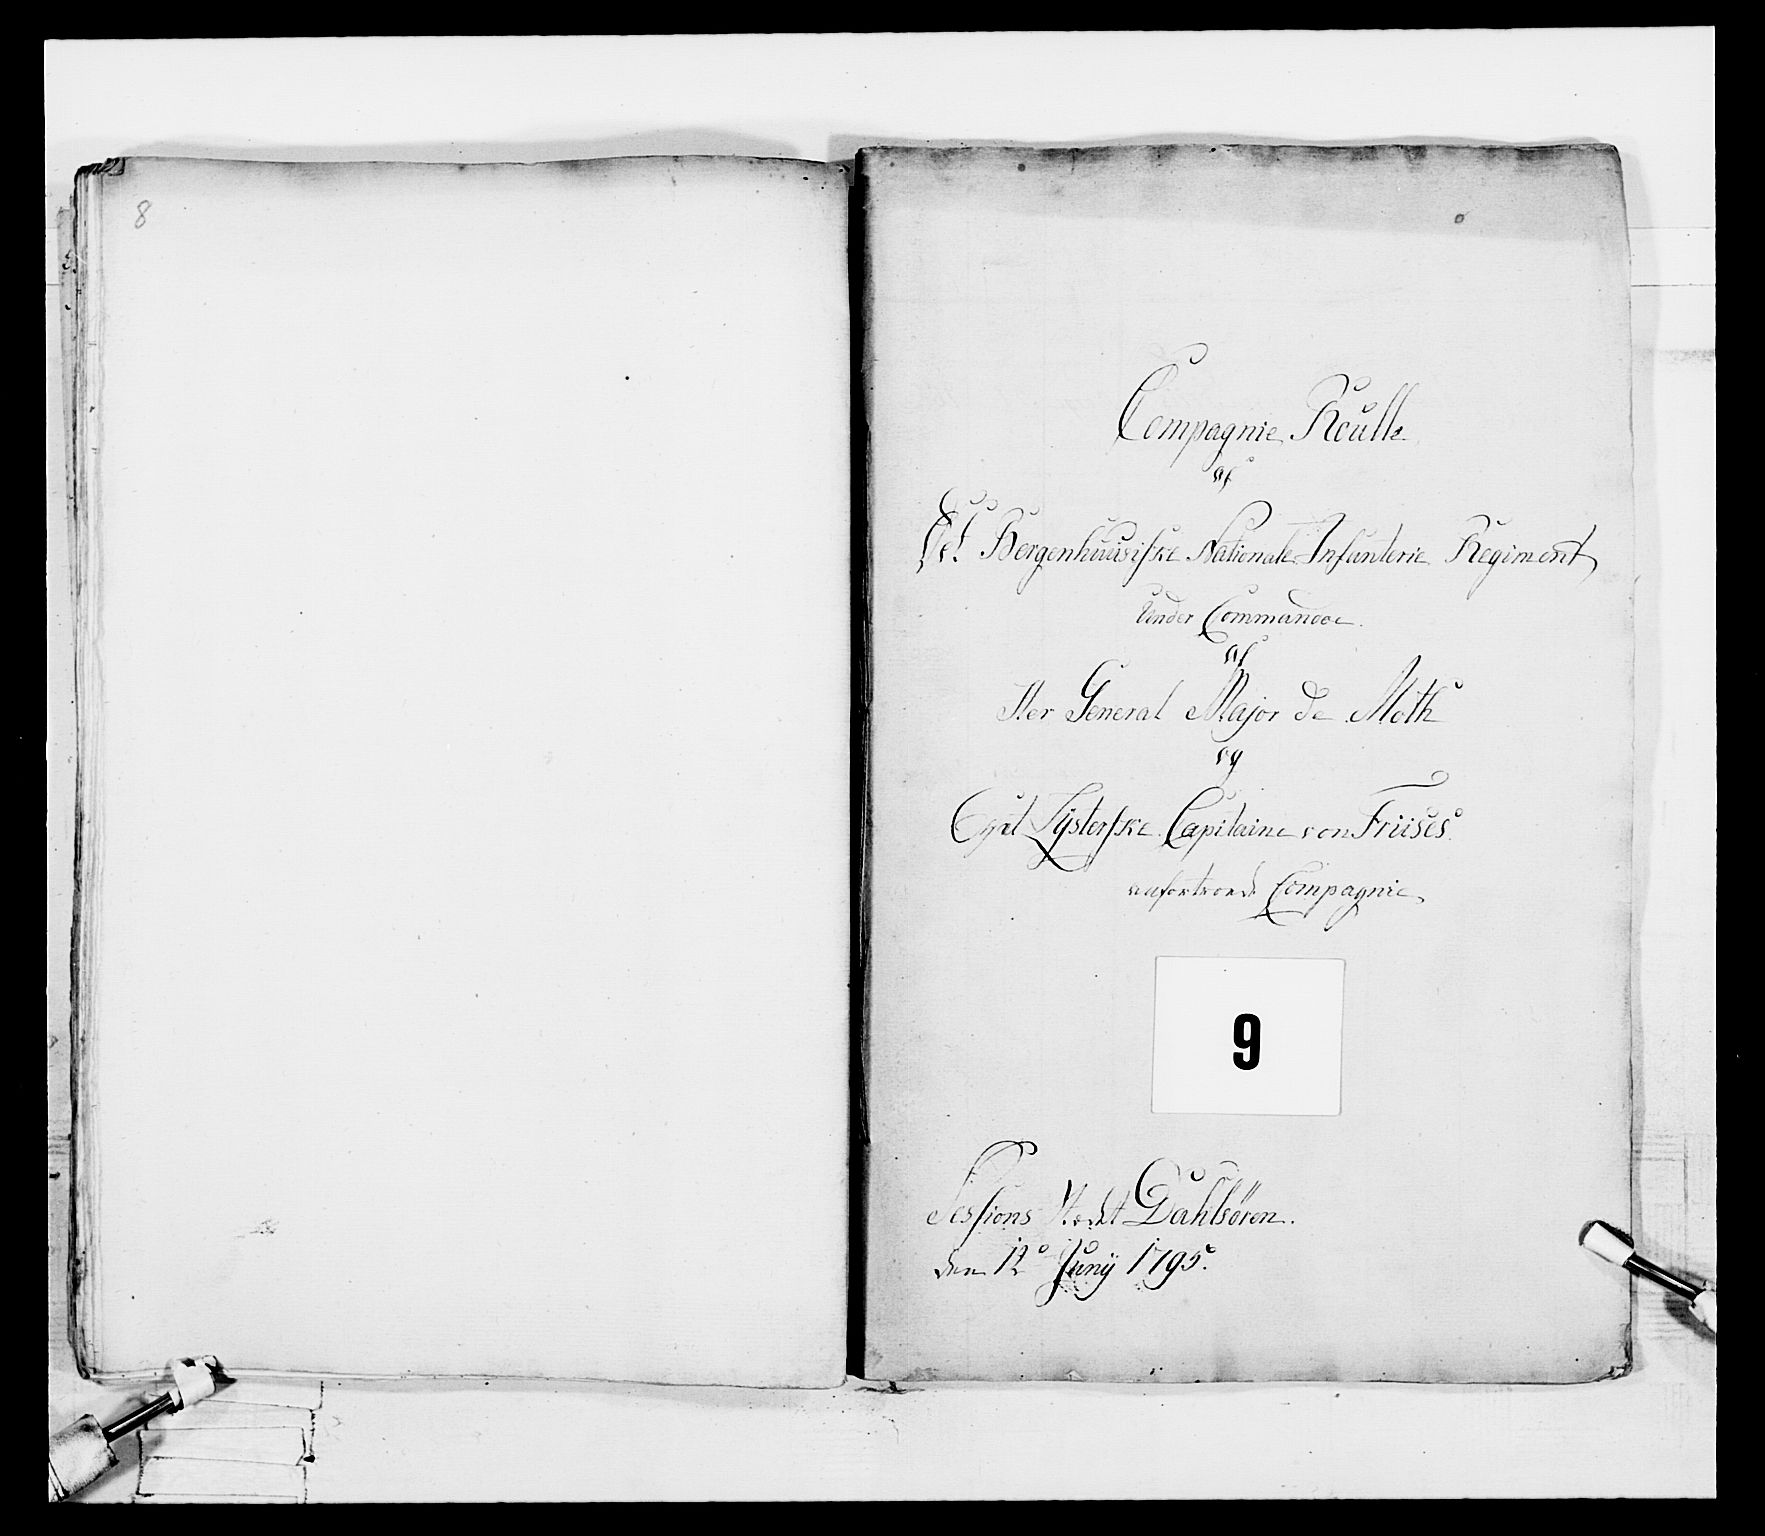 8
Compagnie Roulle
af
Det Bergenhuusiske Nationale Infanterie Regiment
Under Commandoe
af
Her General Major de Moth
og
Lysterske Capitaine von Friises
anfortroede Compagnie
9
Sessions Stedt Dahlsören.
den 12te Junÿ 1795.